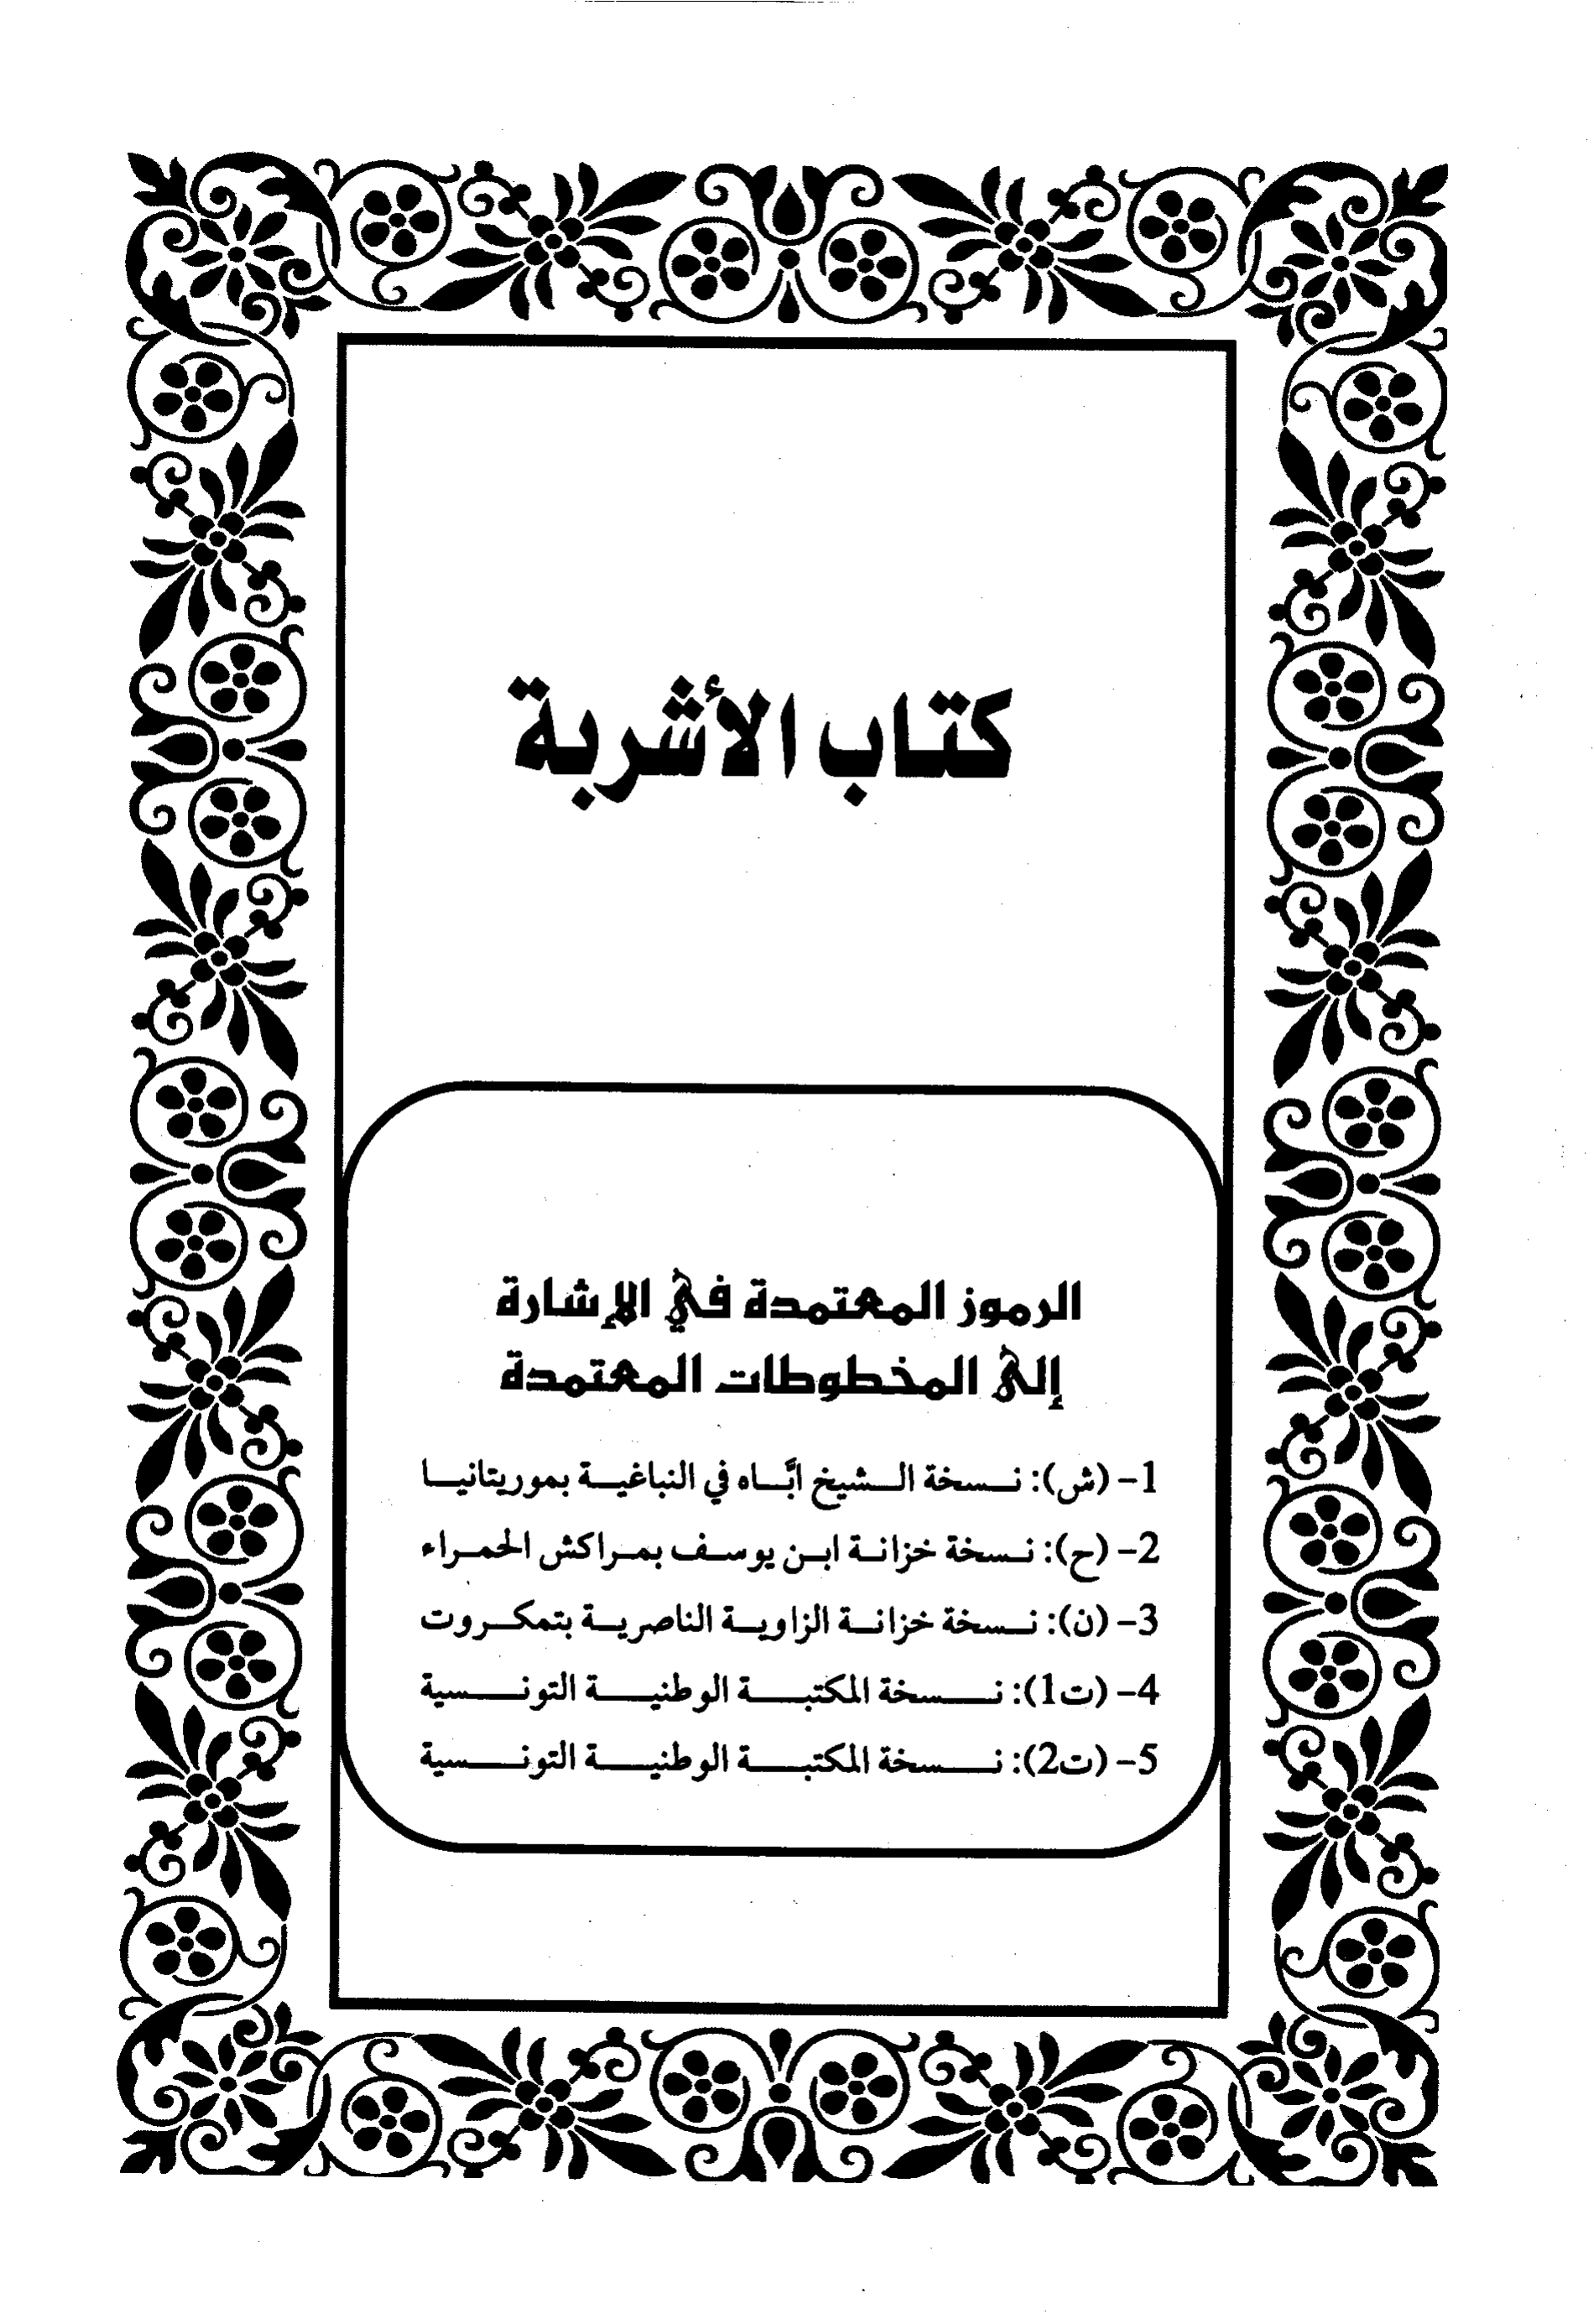 كتاب الأشربة
الرموز المعتمدة في الإشارة
إلى المخطوطات المعتمدة
1- (ش): نسخة الشيخ ابَّاه في النباغية بموريتانيا
2- (ح): نسخة خزانة ابن يوسف بمراكش الحمراء
3- (ن): نسخة خزانة الزاوية الناصرية بتمكروت
4- (ت1): نسخة المكتبة الوطنية التونسية
5- (ت2): نسخة المكتبة الوطنية التونسية